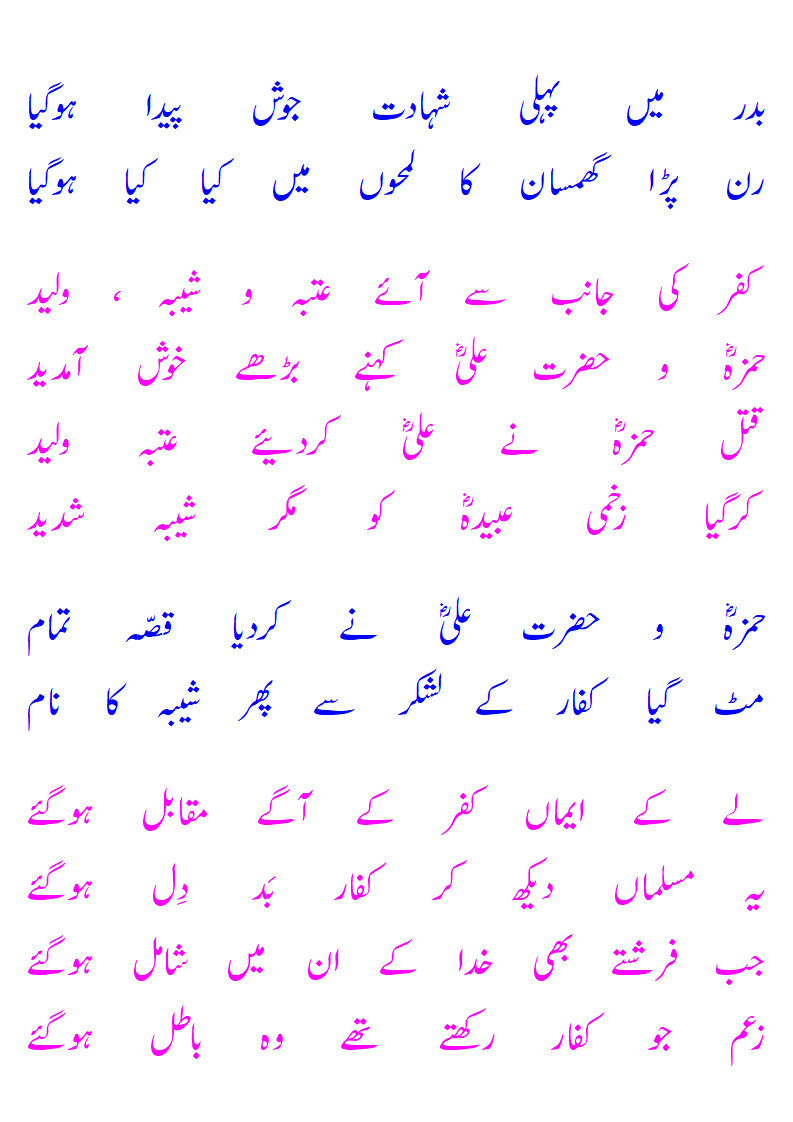 بدر میں پہلی شہادت جوش پیدا ہوگیا
رن پڑا گھمسان کا لمحوں میں کیا کیا ہوگیا
کفر کی جانب سے آئے عتبہ و شیبہ ، ولید
حمزہؓ و حضرت علیؓ کہنے بڑھے خوش آمدید
قتل حمزہؓ نے علیؓ کردیئے عتبہ ولید
کرگیا زخمی عبیدہؓ کو مگر شیبہ شدید
حمزہؓ و حضرت علیؓ نے کردیا قصّہ تمام
مٹ گیا کفار کے لشکر سے پھر شیبہ کا نام
لے کے ایماں کفر کے آگے مقابل ہوگئے
یہ مسلماں دیکھ کر کفار بَد دِل ہوگئے
جب فرشتے بھی خدا کے ان میں شامل ہوگئے
زعم جو کفار رکھتے تھے وہ باطل ہوگئے